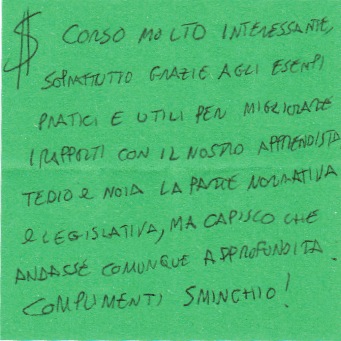 $ CORSO MOLTO INTERESSANTE,
SOPRATTUTTO GRAZIE AGLI ESEMPI
PRATICI E UTILI PER MIGLIORARE
I RAPPORTI CON IL NOSTRO APPRENDISTA
TEDIO e NOIA LA PARTE NORMATIVA
e LEGISLATIVA, MA CAPISCO CHE
ANDASSE COMUNQUE APPROFONDITA.
COMPLIMENTI SMINCHIO!